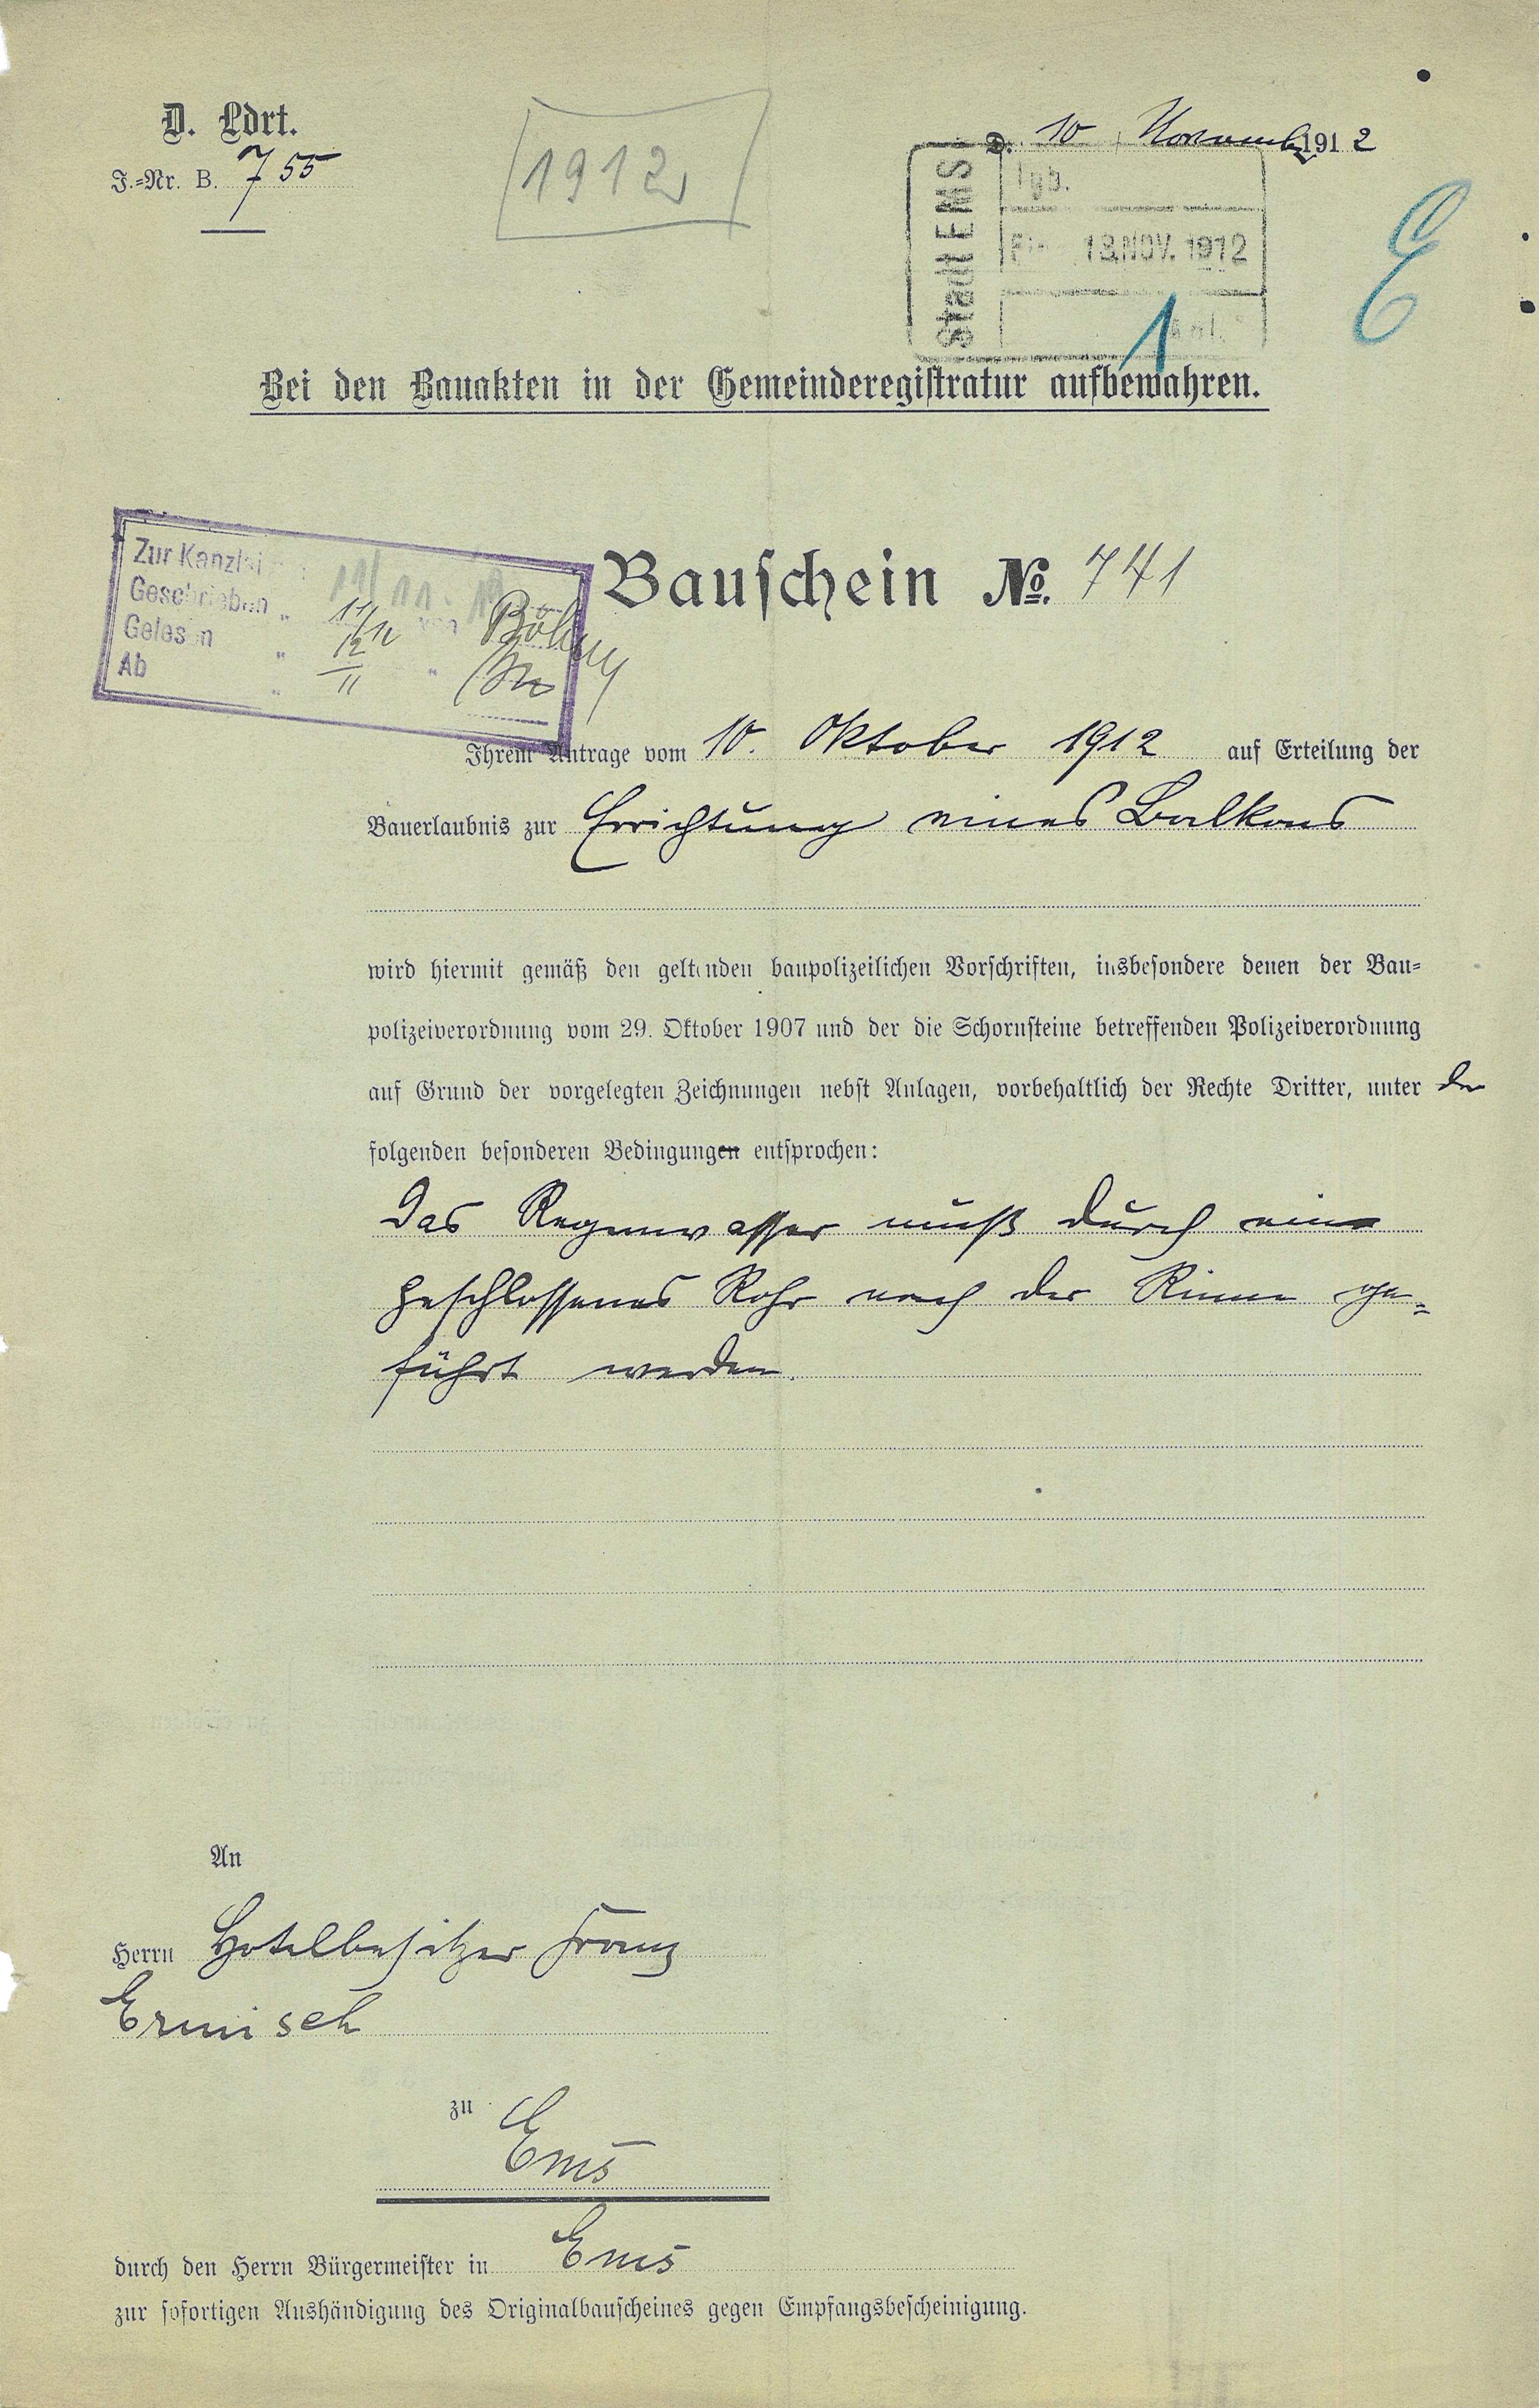 D. Ldrt.
J.=Nr. B. 755
1912
D. 10 Novemb. 1912
Stadt EMS
Tgb.
18. NOV. 1912
1
E
Bei den Bauakten in der Gemeinderegistratur aufbewahren.
Zur Kanzlei
Geschrieben " 11/11
Gelesen " 12/11 "
Ab "
Bauschein No. 741
Ihrem Antrage vom 10. Oktober 1912 auf Erteilung der
Bauerlaubnis zur Errichtung eines Balkons
wird hiermit gemäß den geltenden baupolizeilichen Vorschriften, insbesondere denen der Bau=
polizeiverordnung vom 29. Oktober 1907 und der die Schornsteine betreffenden Polizeiverordnung
auf Grund der vorgelegten Zeichnungen nebst Anlagen, vorbehaltlich der Rechte Dritter, unter der
folgenden besonderen Bedingungen entsprochen:
Das Regenwasser muß durch ein
geschlossenes Rohr nach der Rinne ge=
führt werden.
An
Herrn Hotelbesitzer Franz
Ermisch
zu Ems
durch den Herrn Bürgermeister in Ems
zur sofortigen Aushändigung des Originalbauscheines gegen Empfangsbescheinigung.